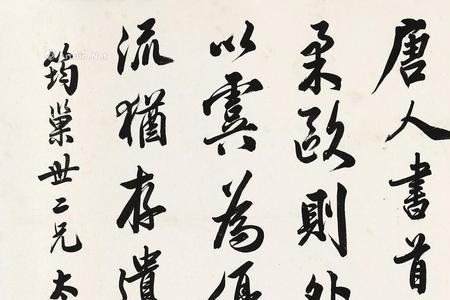 唐人書首
柔歐則外
以虞為優
流猶存遺
筠巢世二兄太